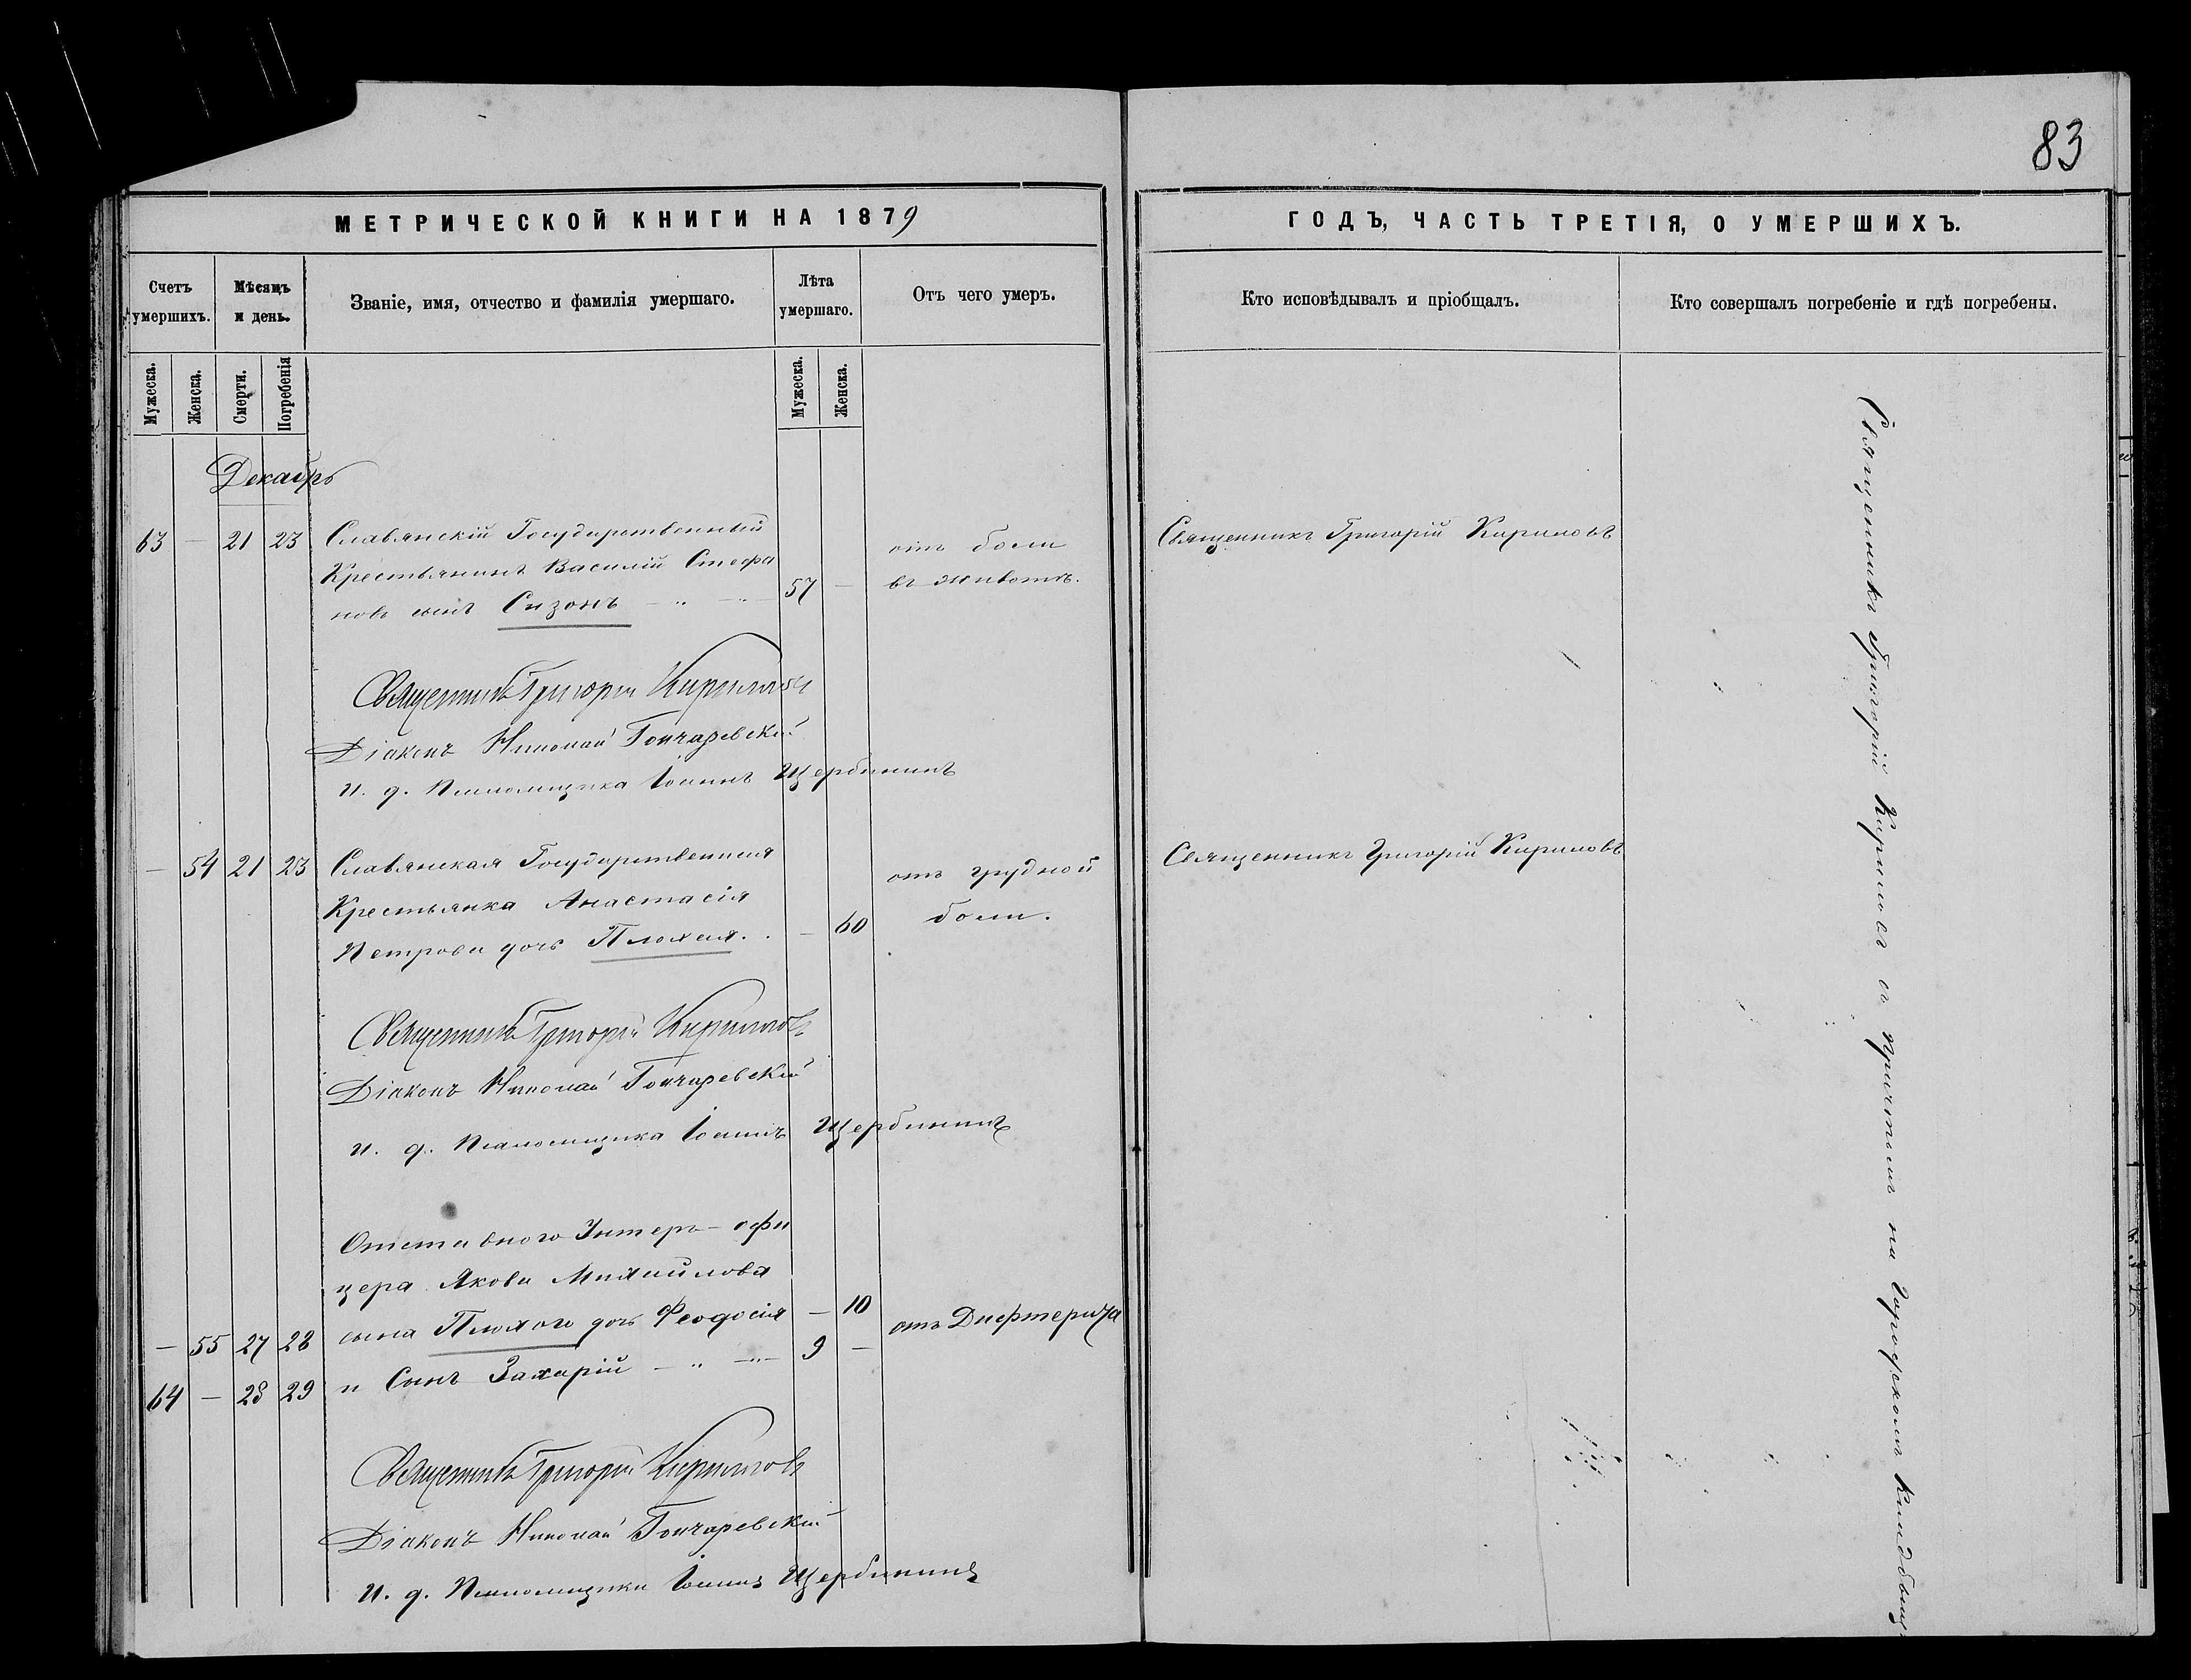 83
МЕТРИЧЕСКОЙ КНИГИ НА 1879
ГОДЪ, ЧАСТЬ ТРЕТІЯ, О УМЕРШИХЪ.
Счетъ умершихъ.
Мѣсяцъ и день.
Званіе, имя, отчество и фамилія умершаго.
Лѣта умершаго.
Отъ чего умеръ.
Кто исповѣдывалъ и пріобщалъ.
Кто совершалъ погребеніе и гдѣ погребены.
Мужеска.
Женска.
Смерти.
Погребенія
Мужеска.
Женска.
Декабрь
63 — 21 23 Славянскій Государственный
Крестьянинъ Василій Стефа
новъ сынъ Сизонъ — " — " — 57 —
отъ боли
въ животѣ.
Священникъ Григорій Кириловъ
Священникъ Григорій Кириловъ
Діаконъ Николай Гончаревскій
И. д. Псаломщика Іоаннъ Щербининъ
— 54 21 23 Славянская Государственная
Крестьянка Анастасія
Петрова дочь Плохая. — 60
отъ грудной
боли.
Священникъ Григорій Кириловъ
Священникъ Григорій Кириловъ
Діаконъ Николай Гончаревскій
И. д. Псаломщика Іоаннъ Щербининъ
Отставного Унтеръ-офи
цера Якова Михайлова
— 55 27 28 сына Плохого дочь Феодосія — 10
64 — 28 29 и Сынъ Захарій — " — " — 9 —
отъ Дифтерита
Священникъ Григорій Кириловъ
Діаконъ Николай Гончаревскій
И. д. Псаломщика Іоаннъ Щербининъ
Священникъ Григорій Кириловъ съ причтомъ на Городскомъ Кладбищ